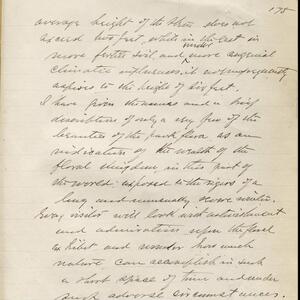 175
average height of the ... does not
exceed two feet while in the East in
more fertile soil and under more congenial
climatic influences it not unfrequently
aspires to the height of six feet.
I have given the names and a brief
description of only a very few of the
beauties of the park flora as an
indication of the wealth of the
floral kingdom in this part of
the world, exposed to the rigors of a
long and unusually severe winter.
Every visitor will look with astonishment
and admiration upon the floral
exhibit and wonder how much
nature can accomplish in such
a short space of time and under
such adverse circumstances.